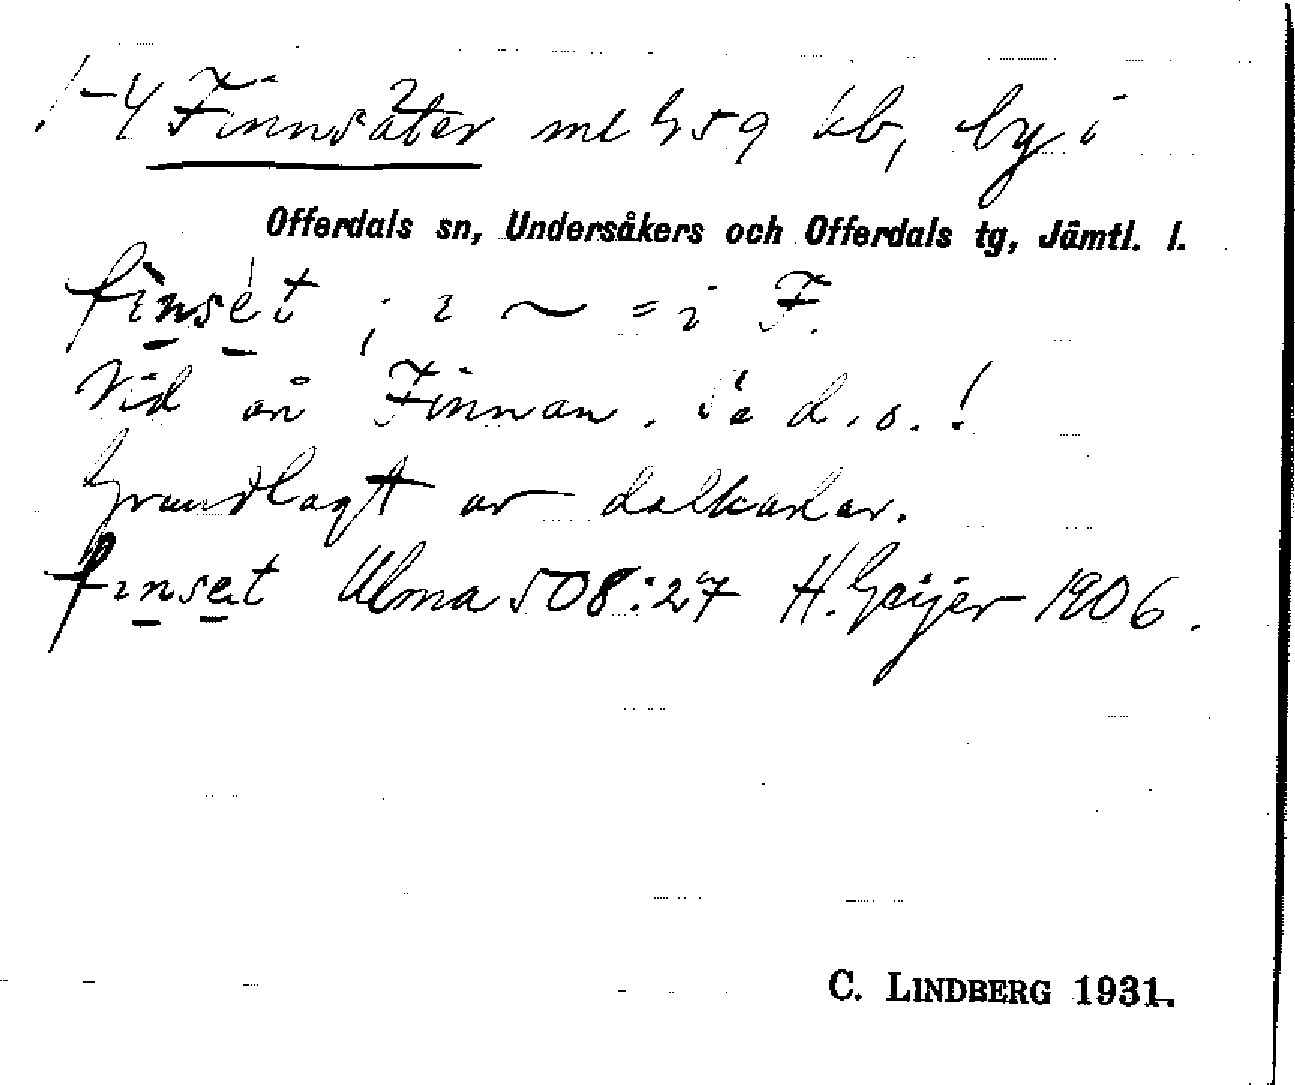 1-4 Finnsäter ml h59 kb, by i
Offerdals sn, Undersåkers och Offerdals tg, Jämtl. l.
finset ; i ~ = i F.
Vid ån Finnan. Se d.o.!
Grundlagt av dalkarlar.
finset Ulma 508:27 H. Geijer 1906.
C. LINDBERG 1931.